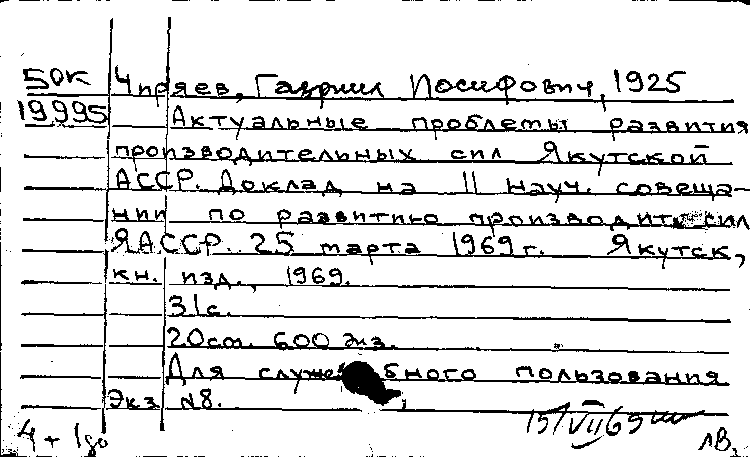 50К Чиряев, Гавриил Иосифович, 1925
19995 Актуальные проблемы развития
производительных сил Якутской
АССР. Доклад на II науч. совеща-
нии по развитию производит. сил
ЯАССР. 25 марта 1969г. Якутск,
кн. изд., 1969.
31с.
20см. 600 экз.
Для служебного пользования
Экз. №8.
15/VII 69
4 + 1